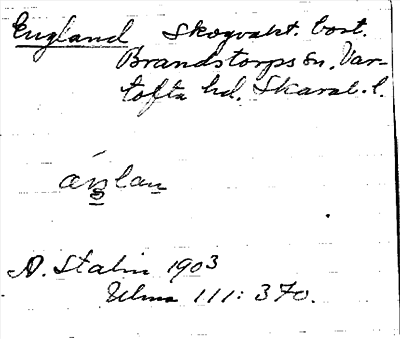 England Skogvakt. bost.
Brandstorps sn, Var-
tofta hd. Skarab. l.
áŋlan
A. Stalin 1903
Ulma 111: 370.